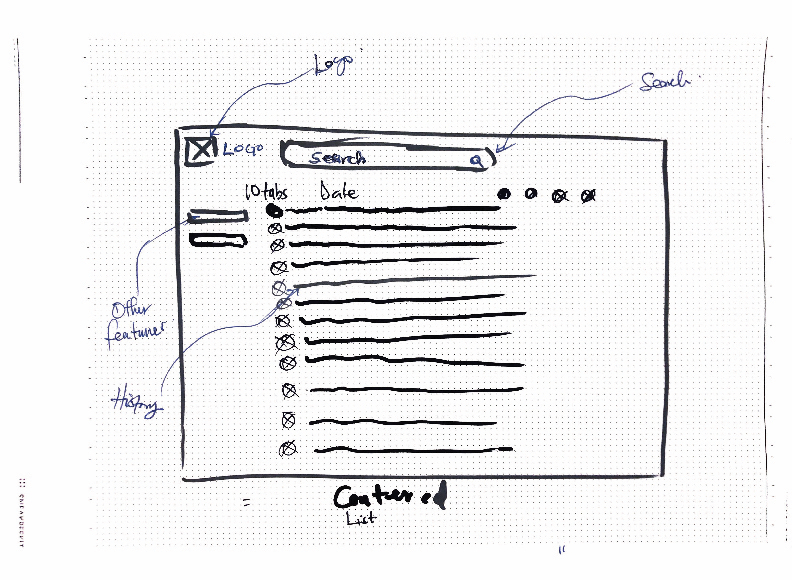 Logo
Search
LOGO
Search
10 tabs Date
Other
features
History
Centured
List